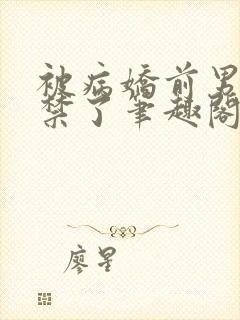 被病娇前男
禁了笔趣阁
廖星